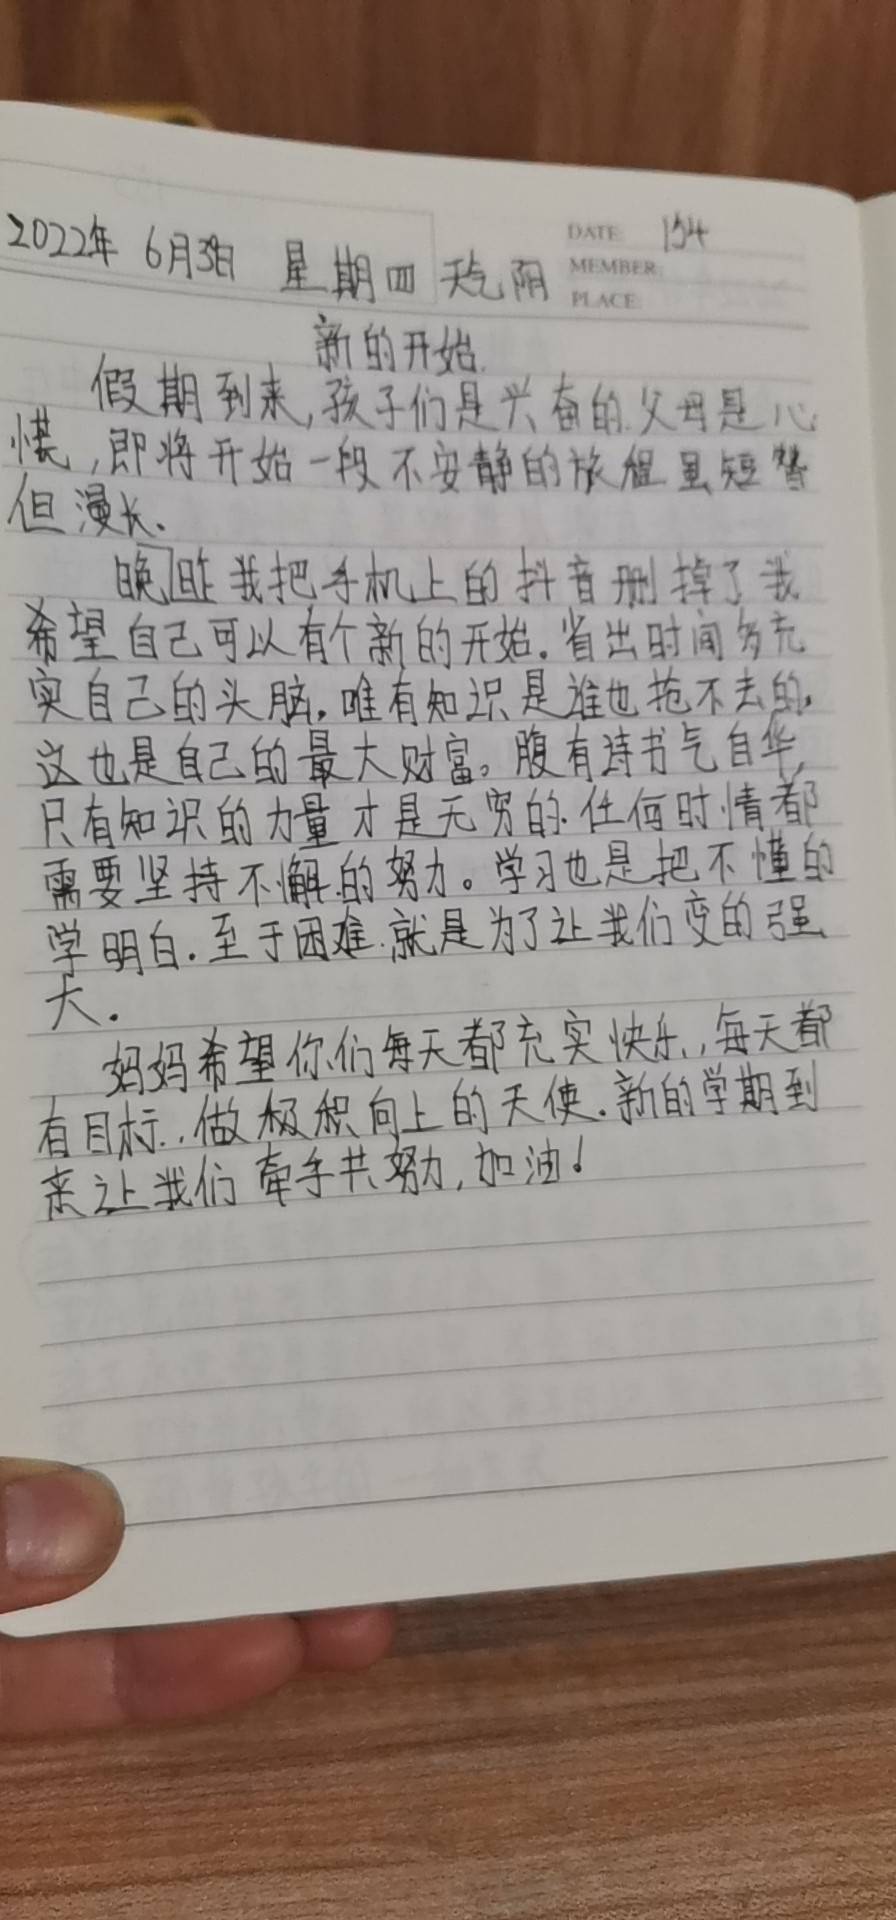 DATE: 154
2022年 6月30日 星期四 天气阴
MEMBER:
PLACE:
新的开始.
假期到来,孩子们是兴奋的.父母是心
慌,即将开始一段不安静的旅程虽短暂
但漫长.
晚昨我把手机上的抖音删掉了我
希望自己可以有个新的开始.省出时间多充
实自己的头脑.唯有知识是谁也抢不去的,
这也是自己的最大财富。腹有诗书气自华,
只有知识的力量才是无穷的.任何时情都
需要坚持不懈的努力。学习也是把不懂的
学明白.至于困难.就是为了让我们变的强
大.
妈妈希望你们每天都充实快乐.,每天都
有目标.,做极积向上的天使.新的学期到
来让我们牵手共努力,加油!